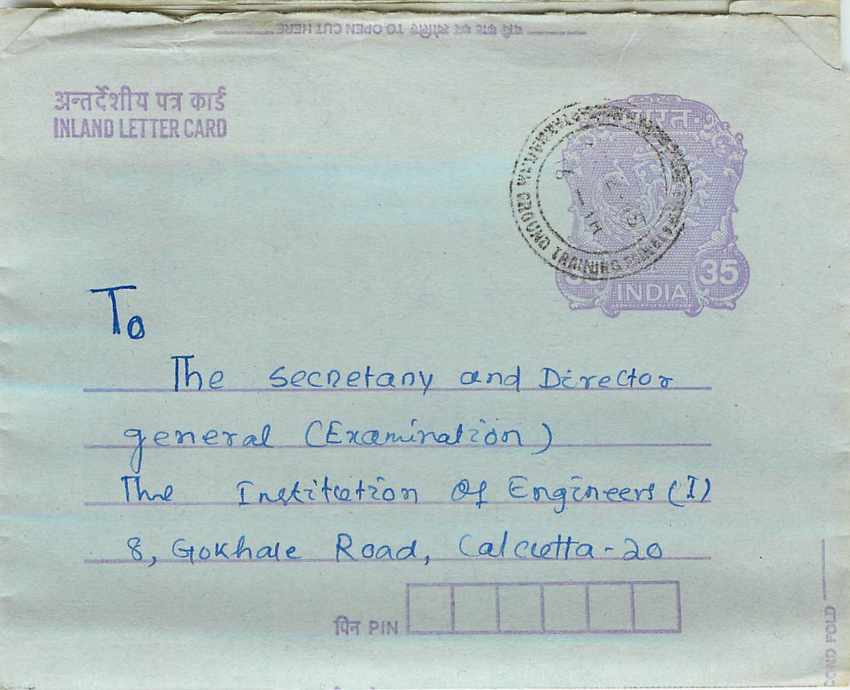 यहाँ काट कर खोलिए TO OPEN CUT HERE
अन्तर्देशीय पत्र कार्ड
INLAND LETTER CARD
भारत
GROUND TRAINING
35
INDIA
To
The Secretary and Director
general (Examination)
The Institution of Engineers (I)
8, Gokhale Road, Calcutta-20
पिन PIN
OND FOLD